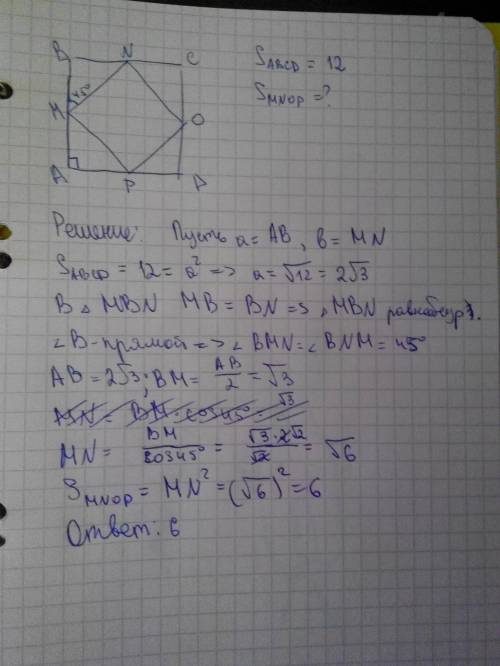 B N C
S_ABCD = 12
45°
M
S_MNOP = ?
O
A P D
Решение: Пусть a = AB, b = MN
S_ABCD = 12 = a² => a = √12 = 2√3
В △ MBN MB = BN => △ MBN равнобедр.
∠B - прямой => ∠BMN = ∠BNM = 45°
AB = 2√3; BM = AB/2 = √3
MN = BM/cos45° = √3·2/√2 = √6
S_MNOP = MN² = (√6)² = 6
Ответ: 6